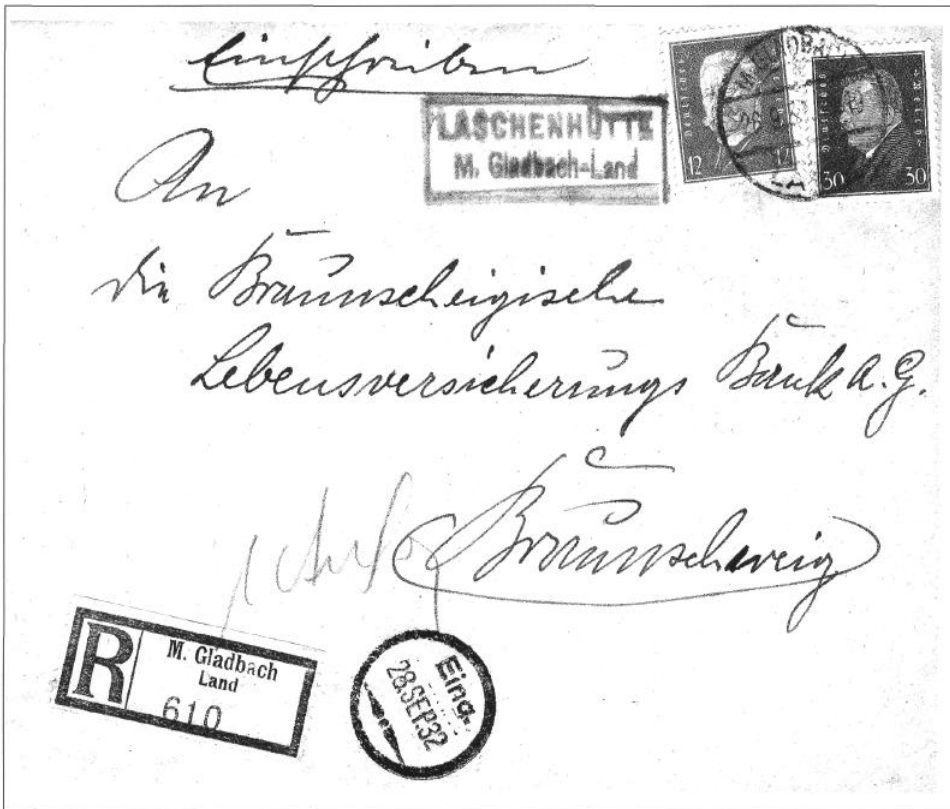 Einschreiben
LASCHENHÜTTE
M. Gladbach-Land
12 12
30 30
An
die Braunscheigische
Lebensversicherungs Bank A.G.
Braunschweig
R M. Gladbach
Land
610
Eing.
28.SEP.32